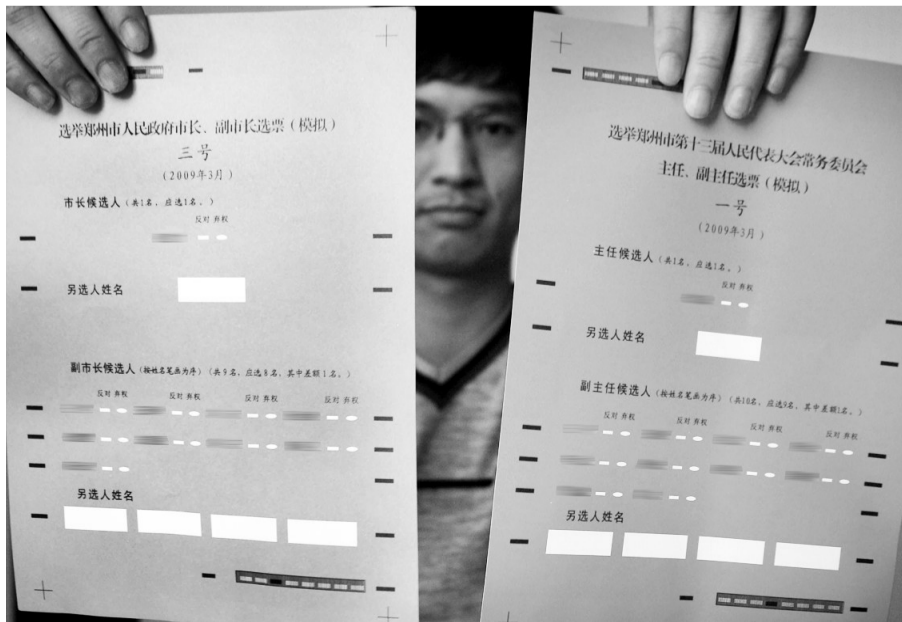 选举郑州市人民政府市长、副市长选票(模拟)
三号
(2009年3月)
市长候选人(共1名,应选1名。)
反对 弃权
另选人姓名
副市长候选人(按姓名笔画为序)(共9名,应选8名,其中差额1名。)
反对 弃权 反对 弃权 反对 弃权 反对 弃权
另选人姓名
选举郑州市第十三届人民代表大会常务委员会
主任、副主任选票(模拟)
一号
(2009年3月)
主任候选人(共1名,应选1名。)
反对 弃权
另选人姓名
副主任候选人(按姓名笔画为序)(共10名,应选9名,其中差额1名。)
反对 弃权 反对 弃权 反对 弃权 反对 弃权
另选人姓名